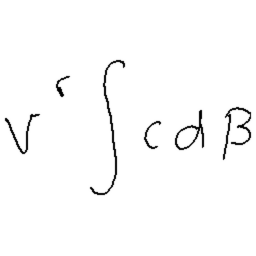 v^r ∫ c d β